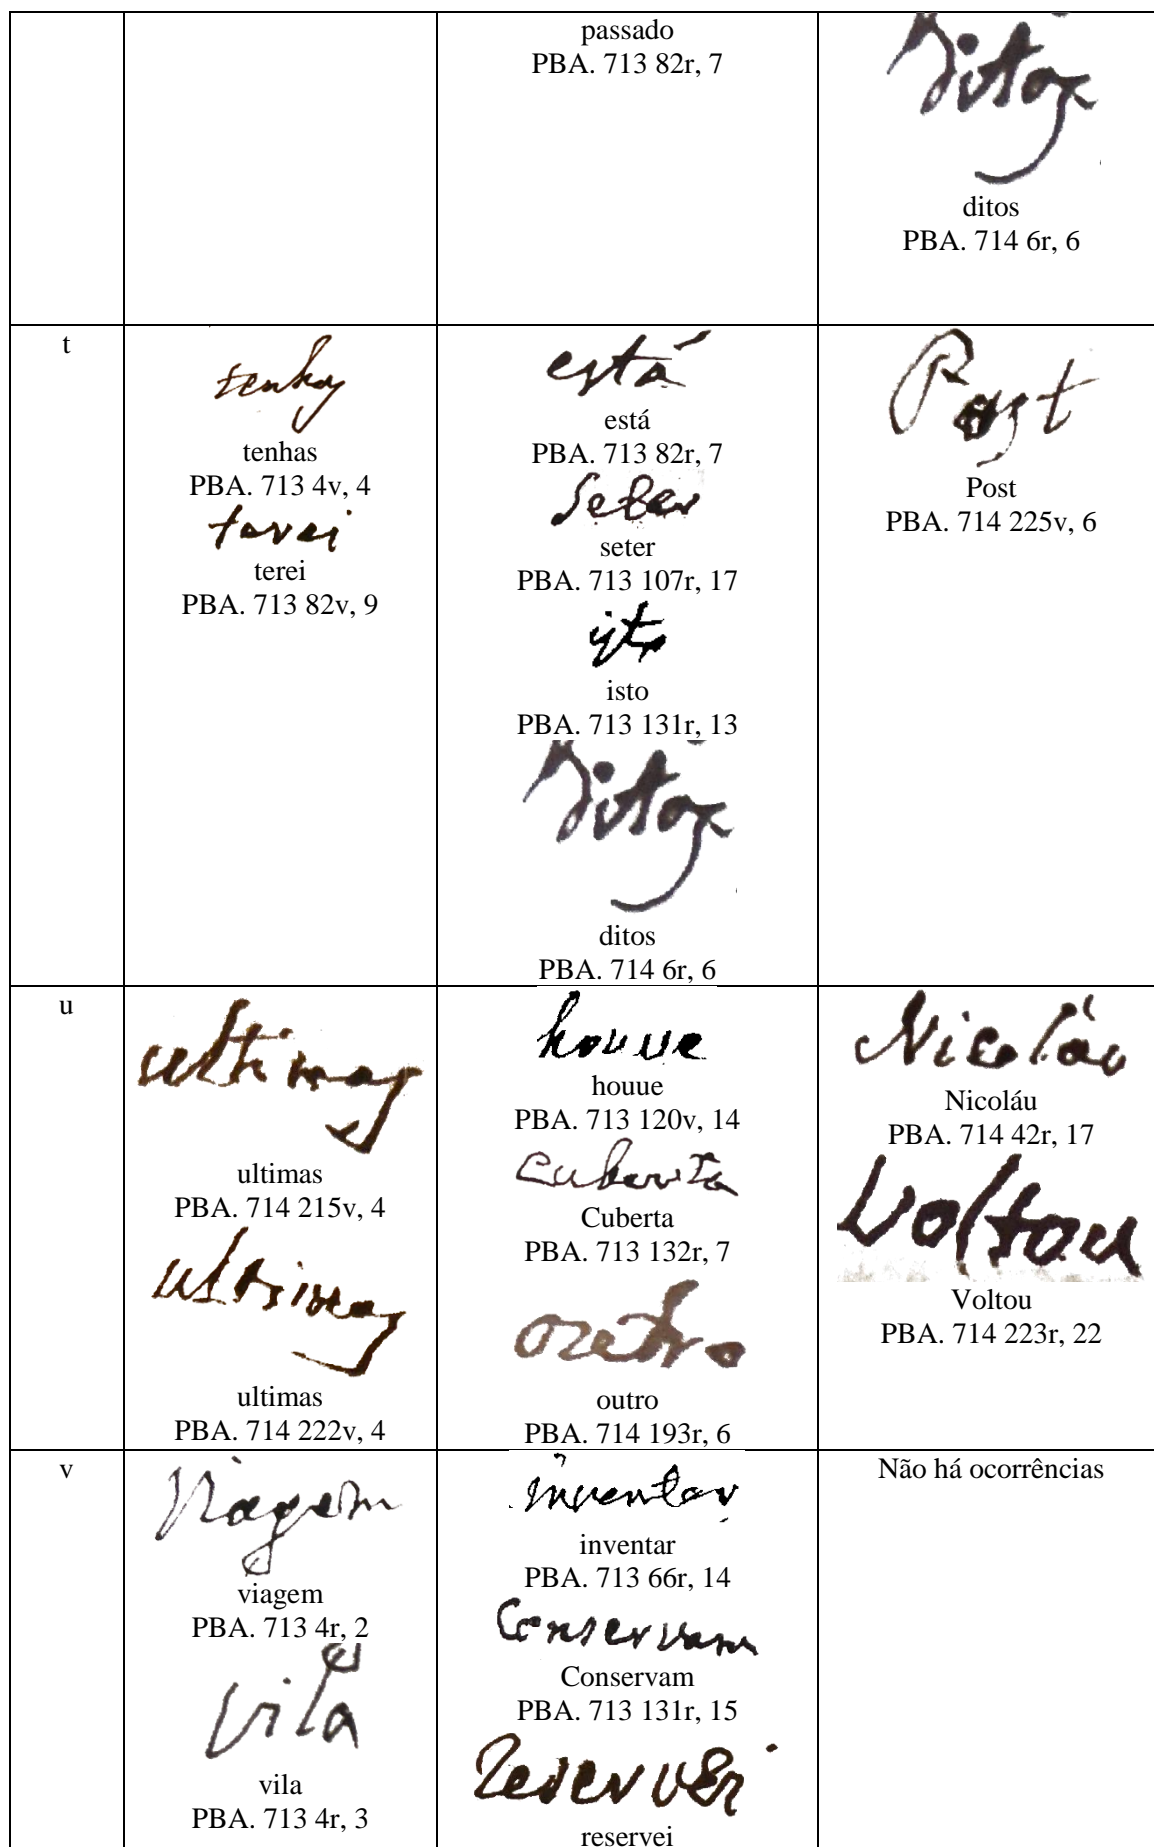 passado
PBA. 713 82r, 7
ditos
ditos
PBA. 714 6r, 6
t
tenhas
tenhas
PBA. 713 4v, 4
terei
terei
PBA. 713 82v, 9
está
está
PBA. 713 82r, 7
seter
seter
PBA. 713 107r, 17
isto
isto
PBA. 713 131r, 13
ditos
ditos
PBA. 714 6r, 6
Post
Post
PBA. 714 225v, 6
u
ultimas
ultimas
PBA. 714 215v, 4
ultimas
ultimas
PBA. 714 222v, 4
houue
houue
PBA. 713 120v, 14
Cuberta
Cuberta
PBA. 713 132r, 7
outro
outro
PBA. 714 193r, 6
Nicoláu
Nicoláu
PBA. 714 42r, 17
Voltou
Voltou
PBA. 714 223r, 22
v
viagem
viagem
PBA. 713 4r, 2
vila
vila
PBA. 713 4r, 3
inventar
inventar
PBA. 713 66r, 14
Conservam
Conservam
PBA. 713 131r, 15
reservei
reservei
Não há ocorrências